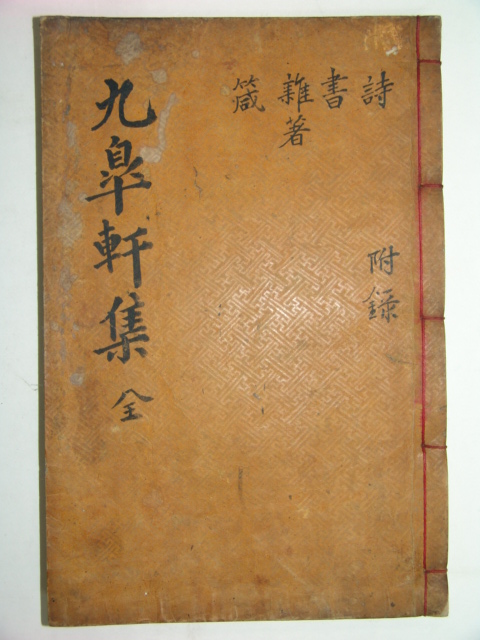 詩
書
雜著
箴
附錄
九皐軒集 全